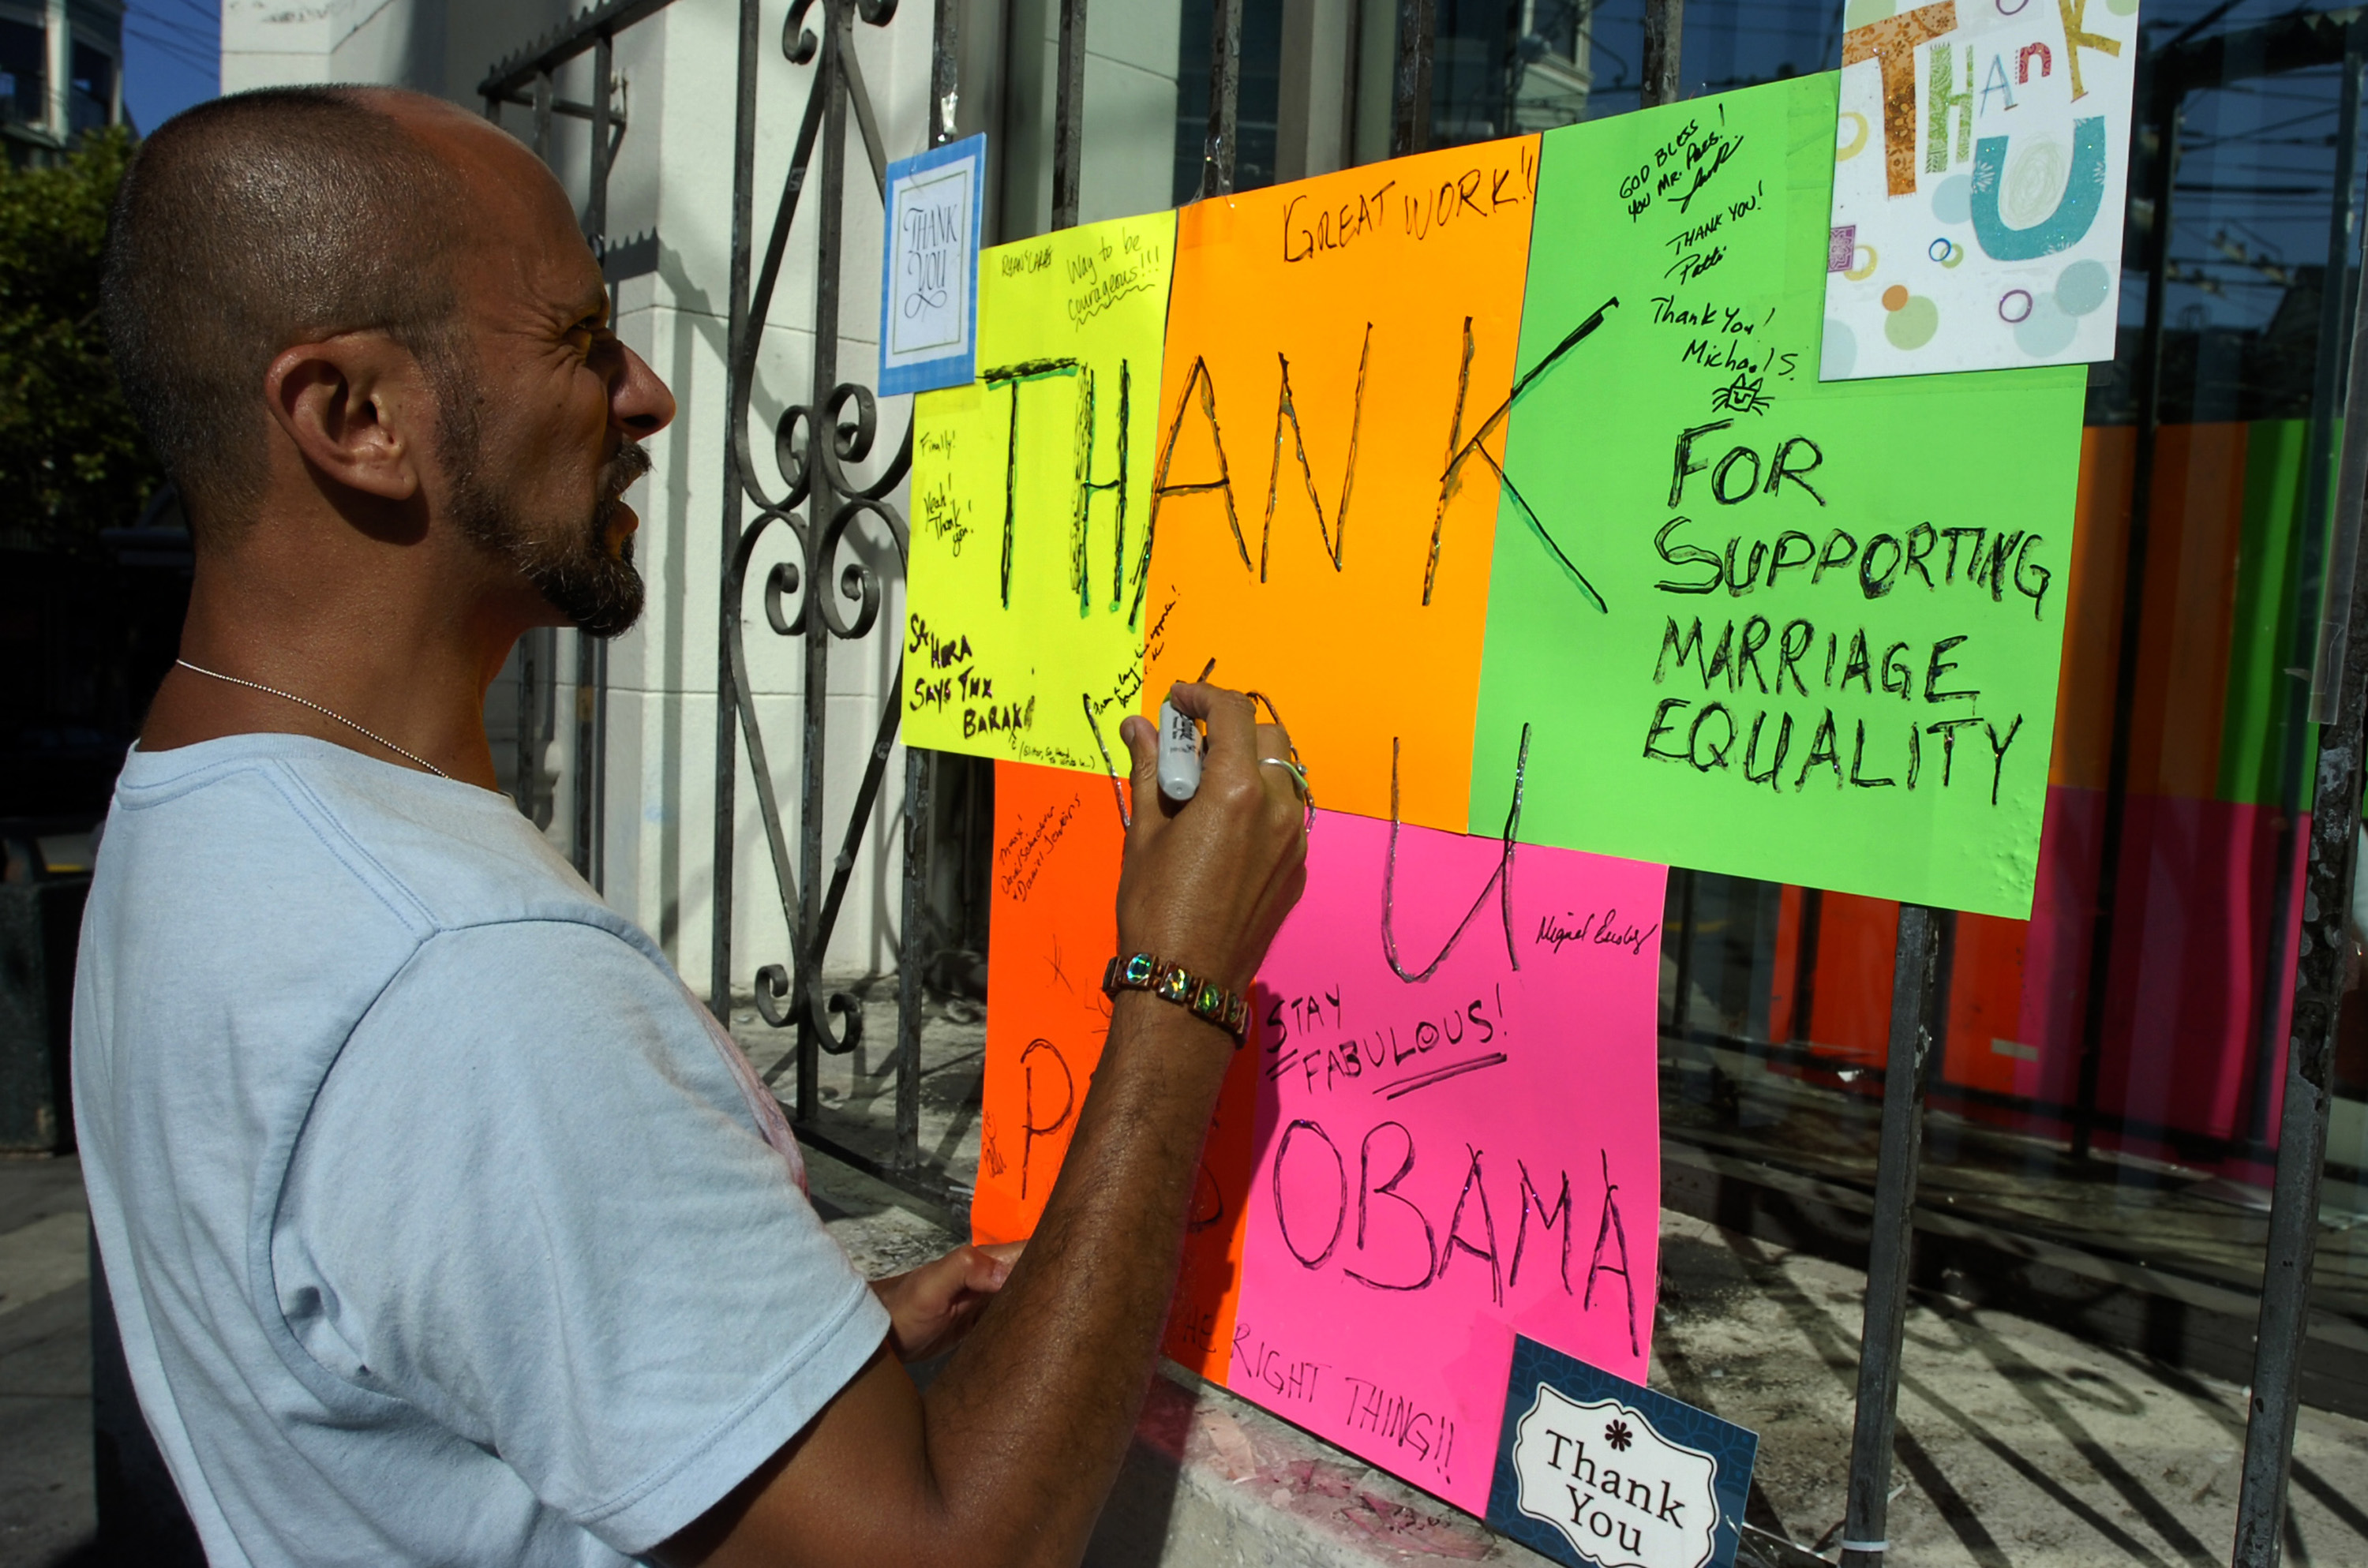 THANK
YOU
Way to be
courageous!!!
GREAT WORK!!
GOD BLESS
YOU MR. PRES.!
THANK YOU!
Patti
Thank You!
Michael S.
THANK
U
THANK
Finally!
Yeah!
Thank
you!
FOR
SUPPORTING
MARRIAGE
EQUALITY
SAHARA
SAYS THX
BARAK
YOU
Thanx!
+ Daniel Jenkins
Miguel
STAY
FABULOUS!
P
OBAMA
HE RIGHT THING!!
Thank
You